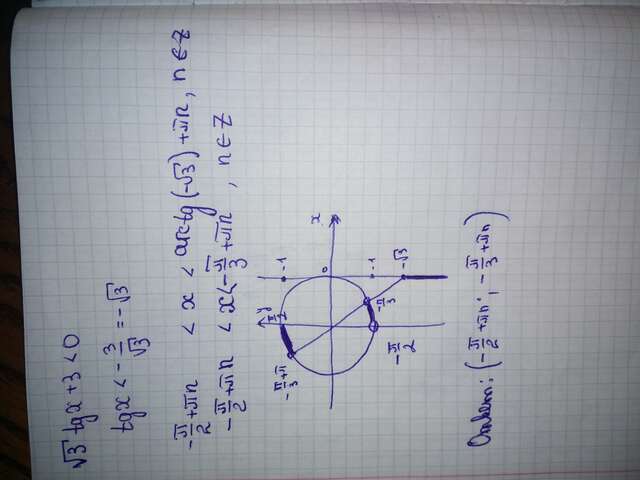 √3 tgx + 3 < 0
tgx < -3/√3 = -√3
-π/2 + πn < x < arctg(-√3) + πn, n ∈ Z
-π/2 + πn < x < -π/3 + πn, n ∈ Z
y
x
π/2
-π/3 + π
-1
0
-1
-√3
-π/3
-π/2
Ответ: (-π/2 + πn; -π/3 + πn)